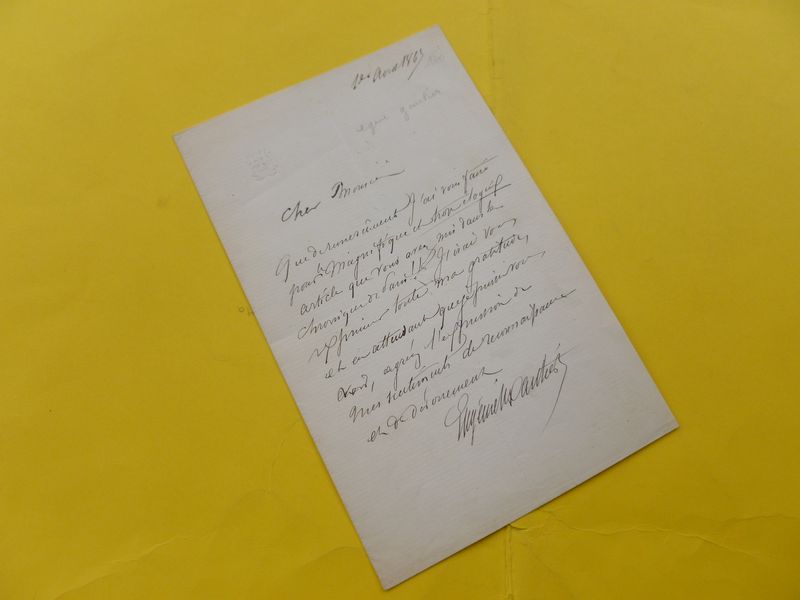 1er Avril 1863
Cher Monsieur
Que de remerciements j'ai à vous faire
pour le magnifique et trop élogieux
article que vous avez mis dans la
chronique de Paris! J'irai vous
exprimer toute ma gratitude,
et en attendant que je puisse vous
voir, agréez l'expression de
mes sentiments de reconnaissance
et de dévouement
Eugène Gautier